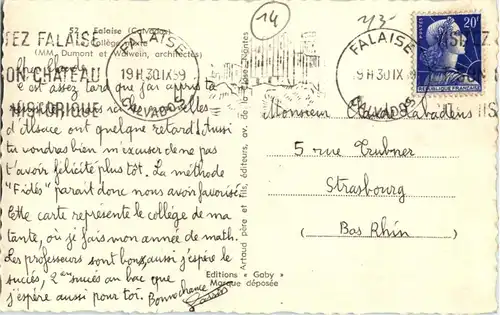 52 Falaise (Calvados)
Collège mixte
(MM. Dumont et Walwein, architectes)
EZ FALAISE
ON CHATEAU
HISTORIQUE
FALAISE
19H 30 IX 59
CALVADOS
14
FALAISE
9H 30 IX
CALVADOS
20F
REPUBLIQUE FRANÇAISE
c'est assez tard que j'ai
d'Alsace ont quelque retard! Aussi
tu voudras bien m'excuser de ne pas
t'avoir félicité plus tôt. La méthode
"Fidès" paraît donc nous avoir favorisé
Cette carte représente le collège de ma
tante, où je fais mon année de math.
Les professeurs sont bons, aussi j'espère le
succès, 2en succès au bac que
j'espère aussi pour toi. Bonne chance
Artaud père et fils, éditeurs, av. de la Nantes
Editions « Gaby »
Marque déposée
Monsieur Claude Labadens
5 rue Trubner
Strasbourg
(Bas Rhin)